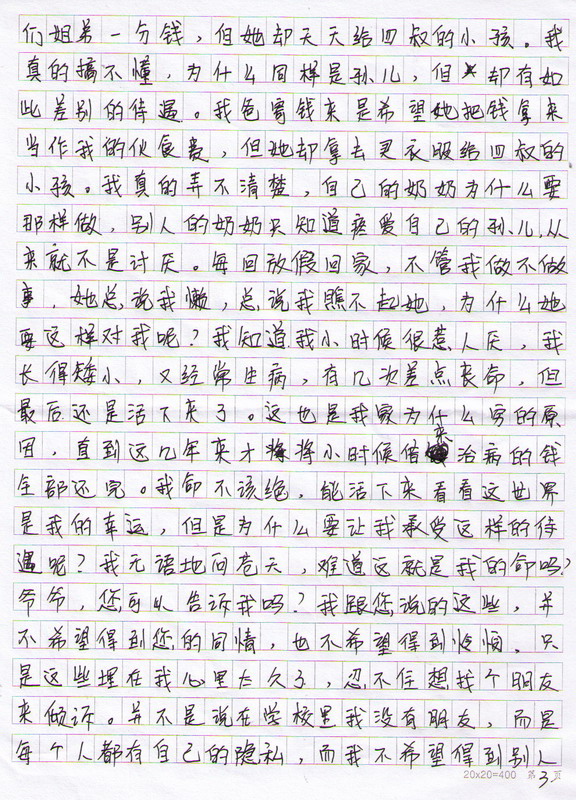 们姐弟一分钱，但她却天天给四叔的小孩。我
真的搞不懂，为什么同样是孙儿，但却有如
此差别的待遇。我爸寄钱来是希望她把钱拿来
当作我的伙食费，但她却拿去买衣服给四叔的
小孩。我真的弄不清楚，自己的奶奶为什么要
那样做，别人的奶奶只知道疼爱自己的孙儿，从
来就不是计厌。每回放假回家，不管我做不做
事，她总说我懒，总说我瞧不起她，为什么她
要这样对我呢？我知道我小时候很惹人厌，我
长得矮小，又经常生病，有几次差点丧命，但
最后还是活下来了。这也是我家为什么穷的原
因，直到这几年来才将小时候借来治病的钱
全部还完。我命不该绝，能活下来看看这世界
是我的幸运，但是为什么要让我承受这样的待
遇呢？我无语地问苍天，难道这就是我的命吗？
爷爷，您可以告诉我吗？我跟您说的这些，并
不希望得到您的同情，也不希望得到怜悯。只
是这些埋在我心里太久了，忍不住想找个朋友
来倾诉。并不是说在学校里我没有朋友，而是
每个人都有自己的隐私，而我不希望得到别人
20x20=400 第3页